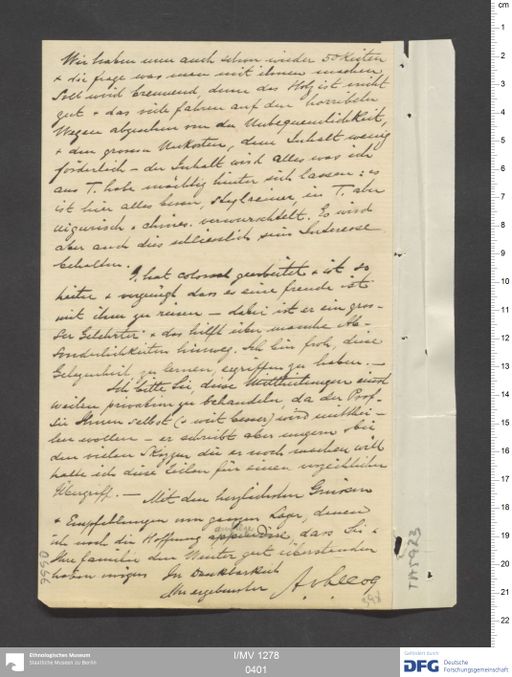 Wir haben nun auch schon wieder 50 Kisten
+ die frage was man mit ihnen machen
soll wird brennend, denn das Holz ist nicht
gut + das viele fahren auf den horribeln
Wegen abgesehen von der Unbequemlichkeit,
+ den grossen Unkosten, dem Inhalt wenig
förderlich – der Inhalt wird alles was ich
aus T. habe mächtig hinter sich lassen: es
ist hier alles besser, stylreiner, in T. aber
uigurisch + chines. verwurschtelt. Es wird
aber auch dies schliesslich sein Interesse
behalten.
G. hat colossal gearbeitet + ist so
heiter + vergnügt dass es eine freude ist
mit ihm zu reisen – dabei ist er ein gros-
ser Gelehrter + das hilft über manche Ab-
sonderlichkeiten hinweg. Ich bin froh, diese
Gelegenheit, zu lernen, ergriffen zu haben. –
Ich bitte Sie, diese Mittheilungen einst
weilen privatim zu behandeln, da der Prof.
sie Ihnen selbst (+ weit besser) wird mitthei-
len wollen – er schreibt aber ungern + bei
den vielen Skizzen die er noch machen will
halte ich diese Zeilen für einen verzeihlichen
Übergriff. – Mit den herzlichsten Grüssen
+ Empfehlungen vom ganzen Lager, denen
ich noch die Hoffnung dass Sie +
Ihre familie den Winter gut überstanden
haben In Dankbarkeit
Ihr ergebenster A. v. Le Coq
TA 5923
cm
1
2
3
4
5
6
7
8
9
10
11
12
13
14
15
16
17
18
19
20
21
22
Ethnologisches Museum
Staatliche Museen zu Berlin
I/MV 1278
0401
Gefördert durch
DFG Deutsche
Forschungsgemeinschaft